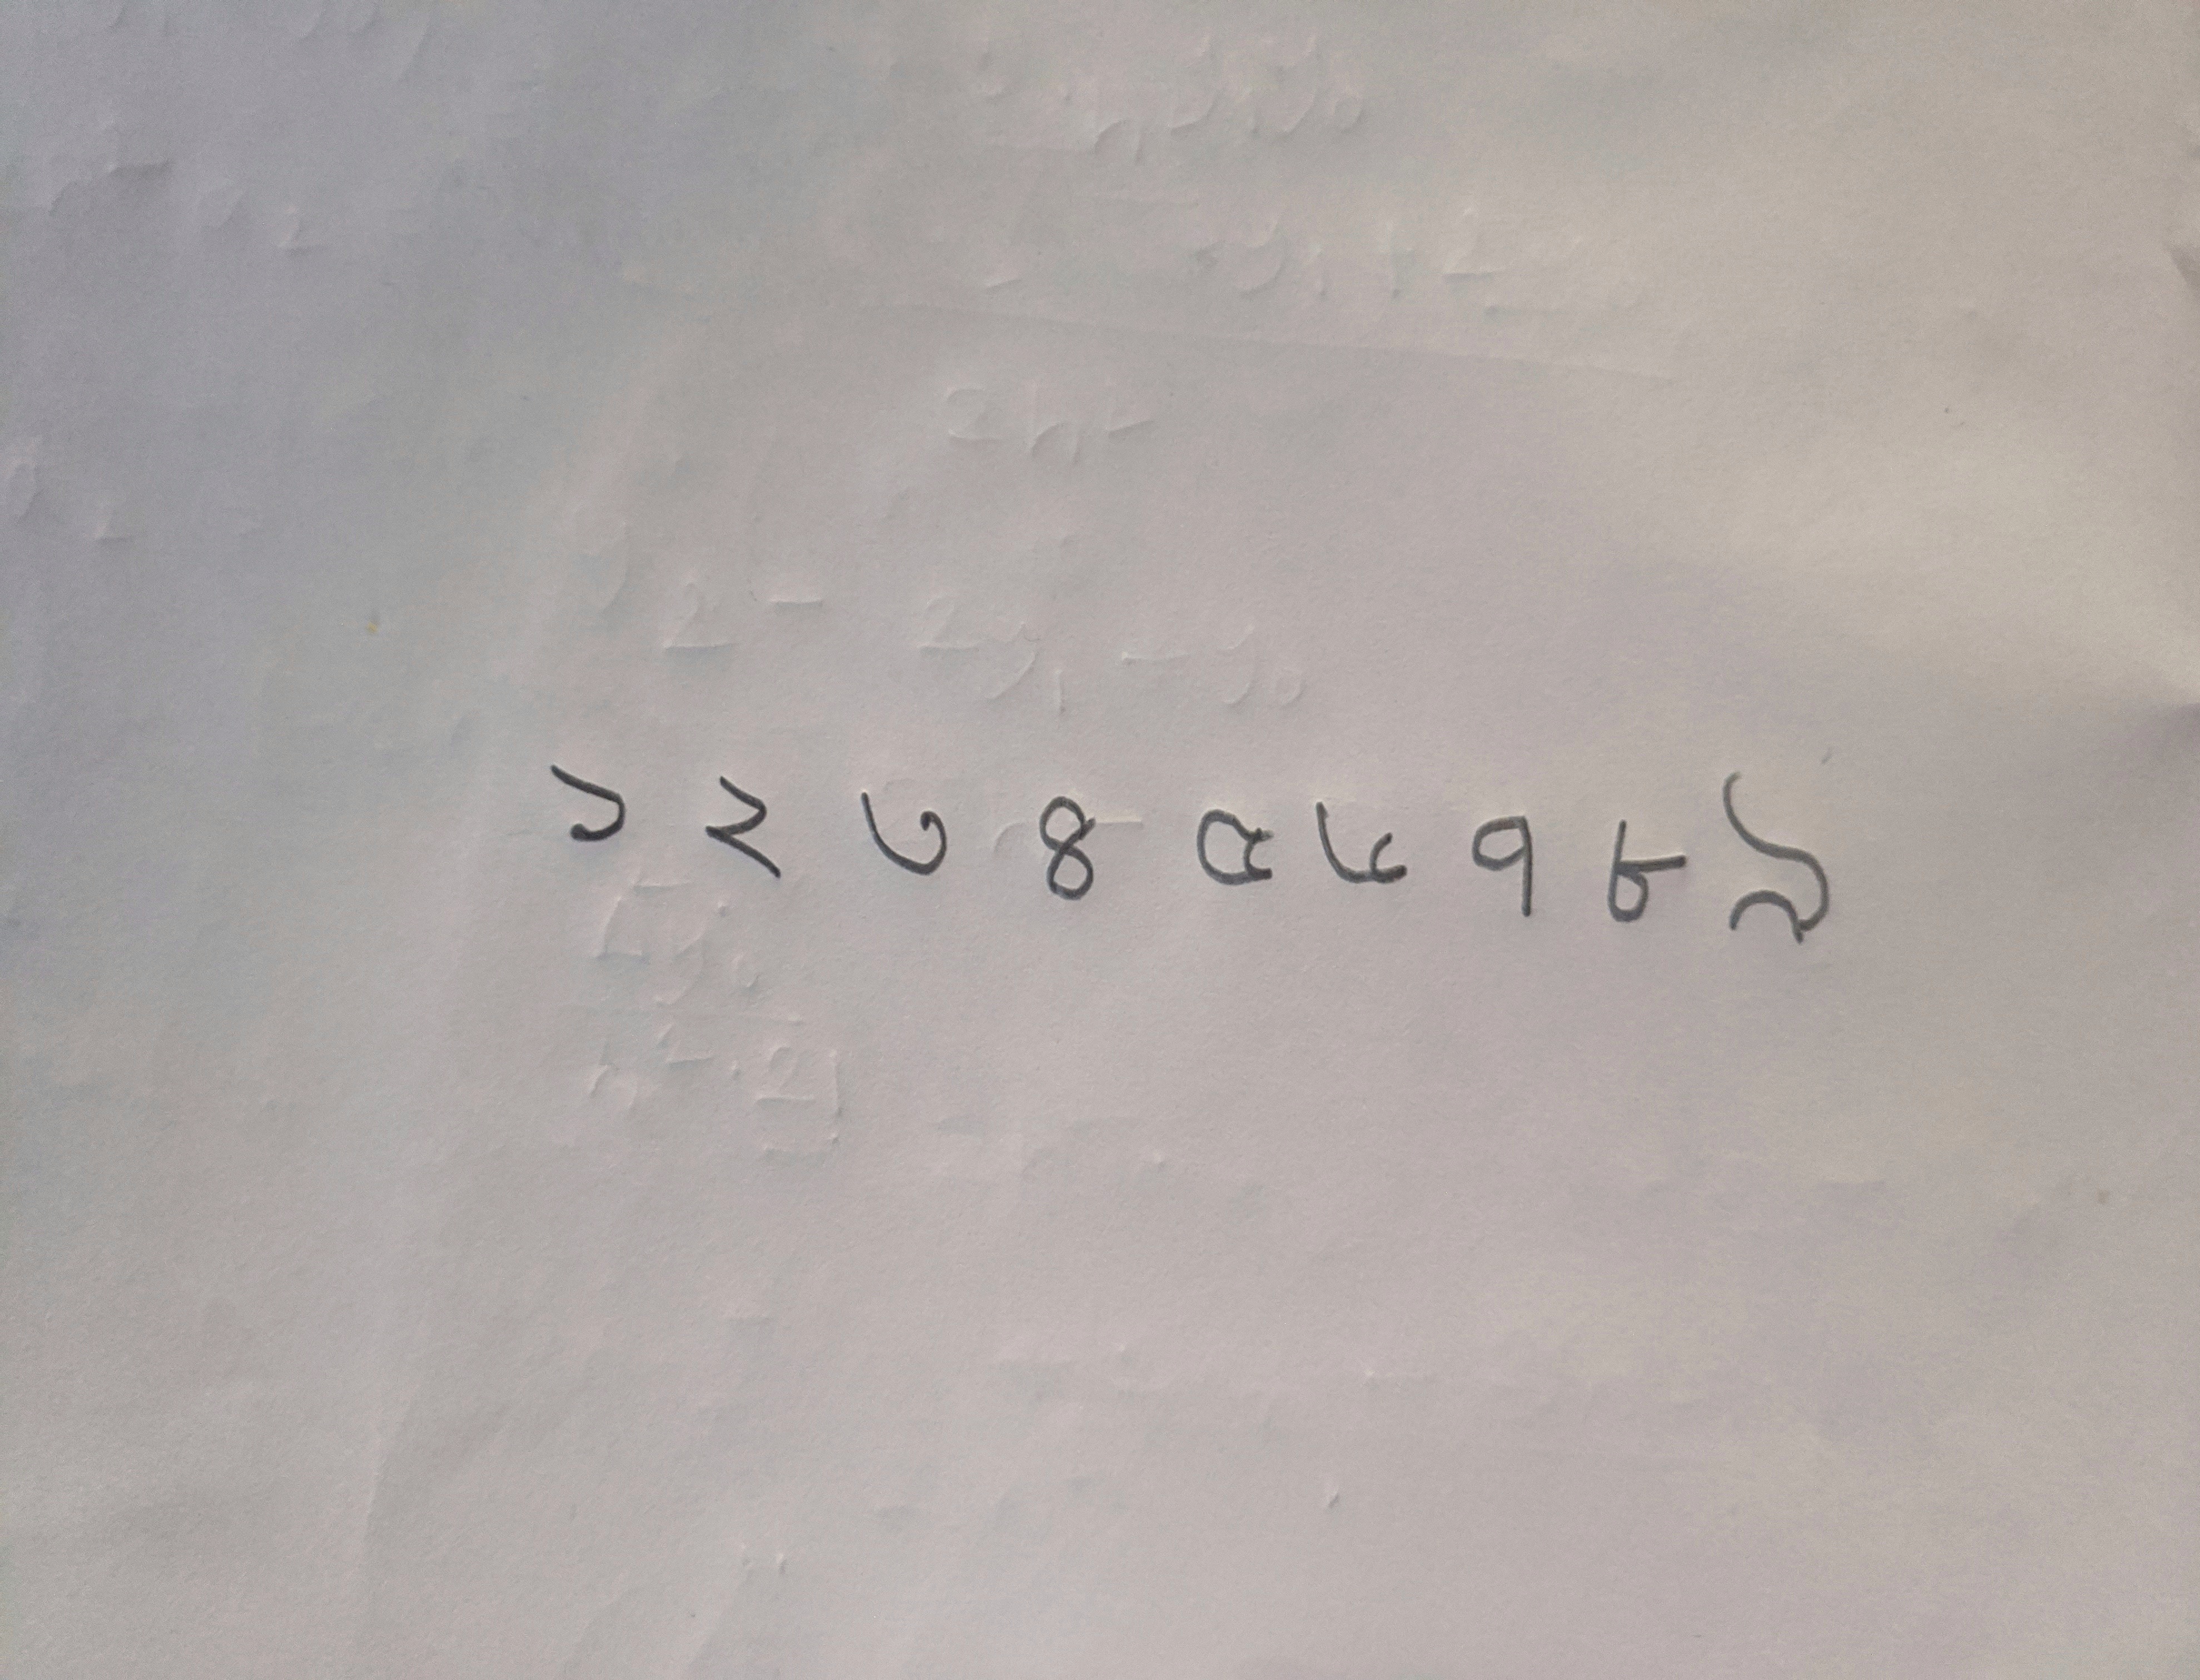 ১ ২ ৩ ৪ ৫ ৬ ৭ ৮ ৯